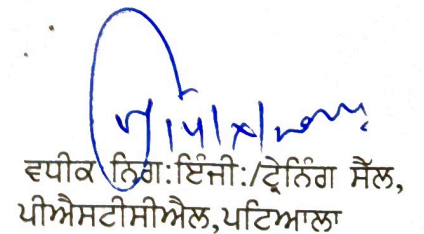 ਵਧੀਕ ਨਿਗ:ਇੰਜੀ:/ਟ੍ਰੇਨਿੰਗ ਸੈੱਲ,
ਪੀਐਸਟੀਸੀਐਲ,ਪਟਿਆਲਾ